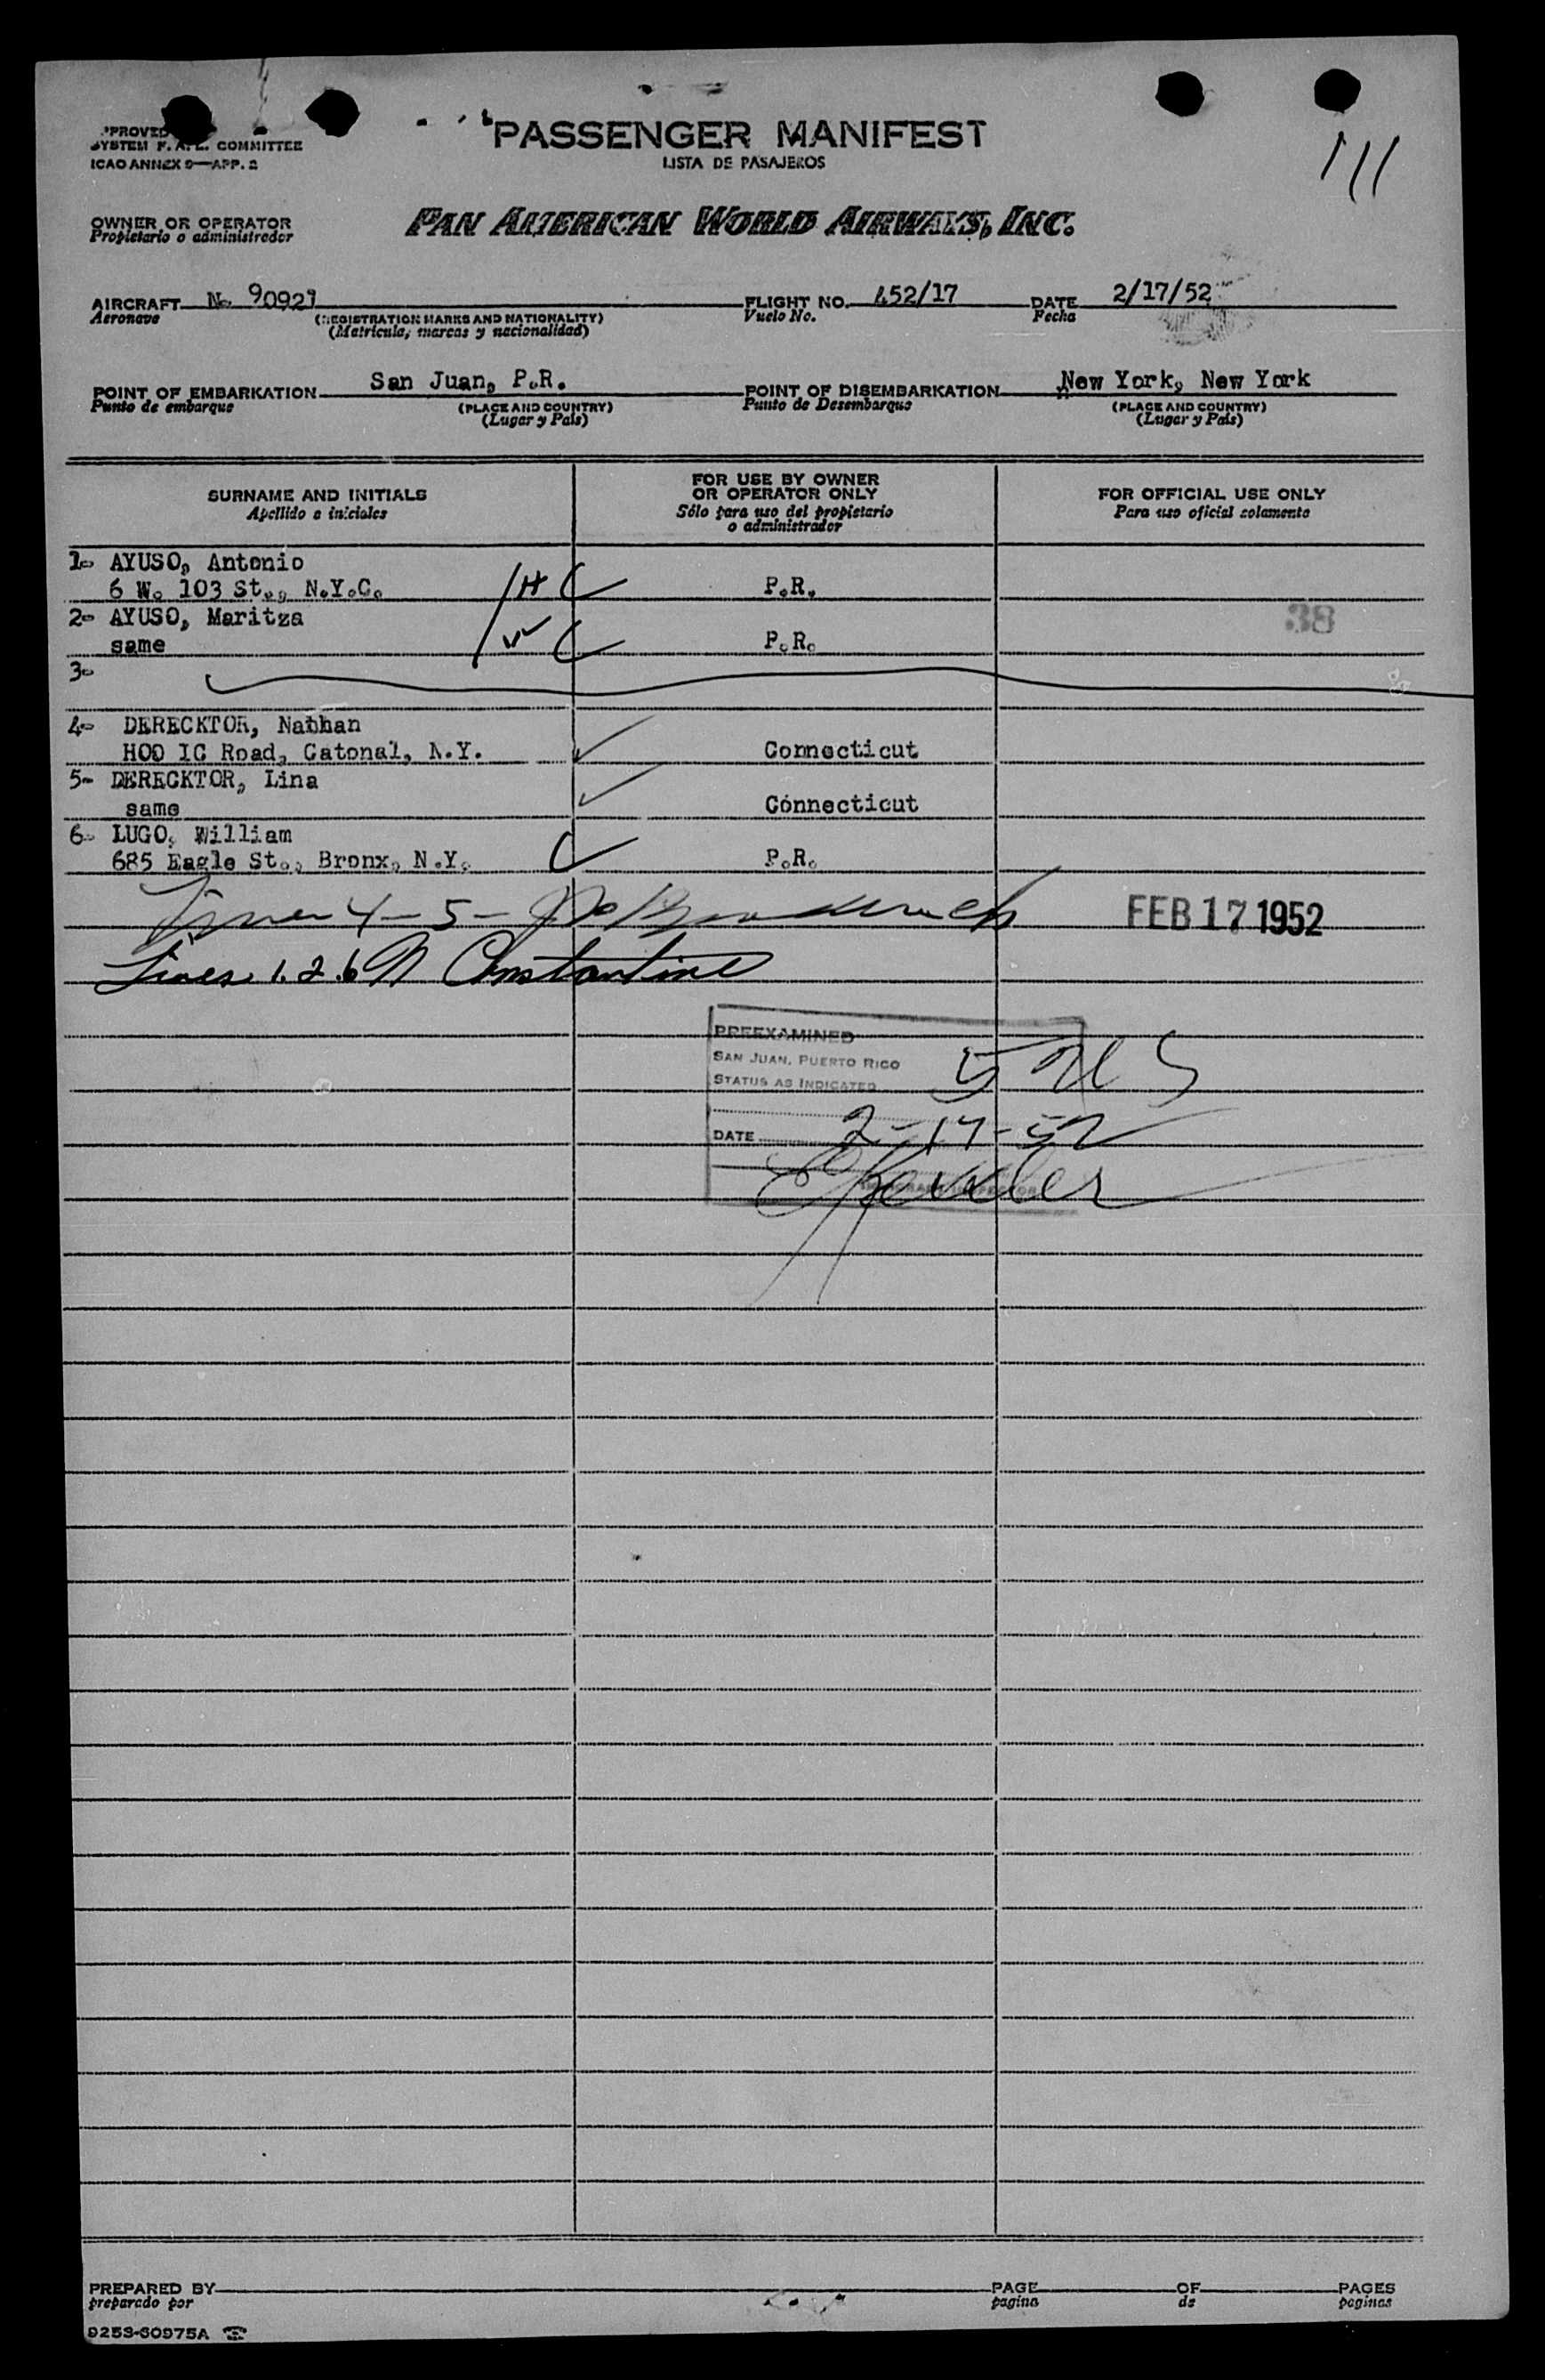 PASSENGER MANIFEST
LISTA DE PASAJEROS
111
SYSTEM F. A. L. COMMITTEE
ICAO ANNEX 9—APP. 2
OWNER OR OPERATOR
Propietario o administrador
PAN AMERICAN WORLD AIRWAYS, INC.
AIRCRAFT N- 90927 FLIGHT NO. 452/17 DATE 2/17/52
Aeronave (REGISTRATION MARKS AND NATIONALITY) Vuelo No. Fecha
(Matricula, marcas y nacionalidad)
POINT OF EMBARKATION San Juan, P.R. POINT OF DISEMBARKATION New York, New York
Punto de embarque (PLACE AND COUNTRY) Punto de Desembarque (PLACE AND COUNTRY)
(Lugar y País) (Lugar y País)
SURNAME AND INITIALS
Apellido e iniciales
FOR USE BY OWNER
OR OPERATOR ONLY
Sólo para uso del propietario
o administrador
FOR OFFICIAL USE ONLY
Para uso oficial solamente
1- AYUSO, Antonio
6 W. 103 St., N.Y.C. P.R.
2- AYUSO, Maritza 38
same P.R.
3-
4- DERECKTOR, Nathan
HOO IC Road, Catonal, N.Y. Connecticut
5- DERECKTOR, Lina
same Connecticut
6- LUGO, William
685 Eagle St., Bronx, N.Y. P.R.
4-5- FEB 17 1952
Lines 1.2.6 N Constantine
PREEXAMINED
SAN JUAN, PUERTO RICO
STATUS AS INDICATED
5
DATE 2-17-52
PREPARED BY PAGE OF PAGES
preparado por pagina de paginas
9253-60975A